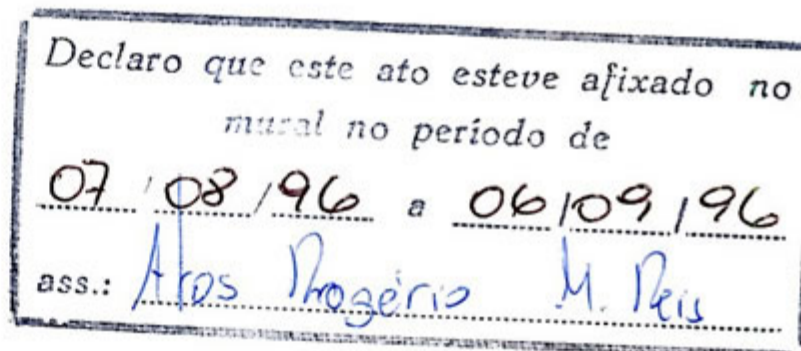 Declaro que este ato esteve afixado no
mural no período de
07/08/96 a 06/09/96
ass.: Atos Rogério M. Reis